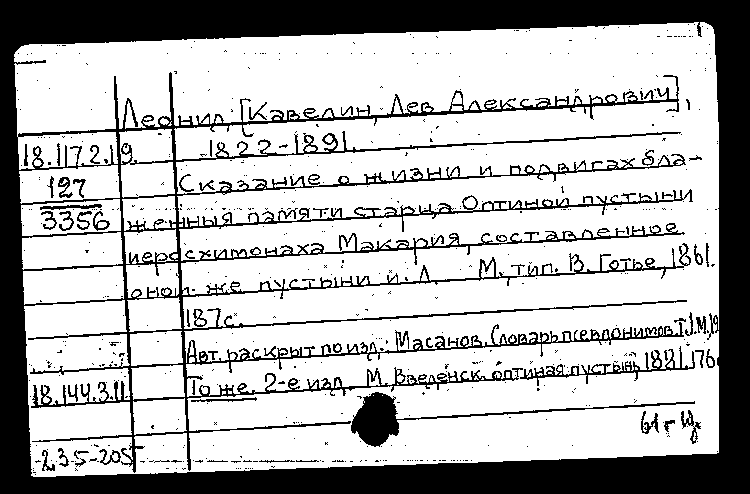 Леонид, [Кавелин, Лев Александрович],
18.117.2.19. 1822-1891.
127 Сказание о жизни и подвигах бла-
3356 женныя памяти старца Оптиной пустыни
иеросхимонаха Макария, составленное
оной же пустыни и. Л. М., тип. В. Готье, 1861.
187с.
Авт. раскрыт по изд.: Масанов. Словарь псевдонимов. Т.1. М.,19
18.144.3.11 То же. 2-е изд. М., Введенск. оптиная пустынь, 1881. 176
61 г
235-205